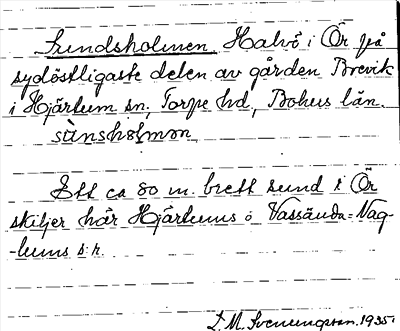 Sundsholmen. Halvö i Ör på
sydöstligaste delen av gården Brevik
i Hjärtum sn. Torpe hd, Bohus län.
sùnshɵlmən
Ett ca 80 m. brett sund i Ör
skiljer här Hjärtums o Vassända-Nag-
-lums s:r.
L. M. Svenungsson. 1935.